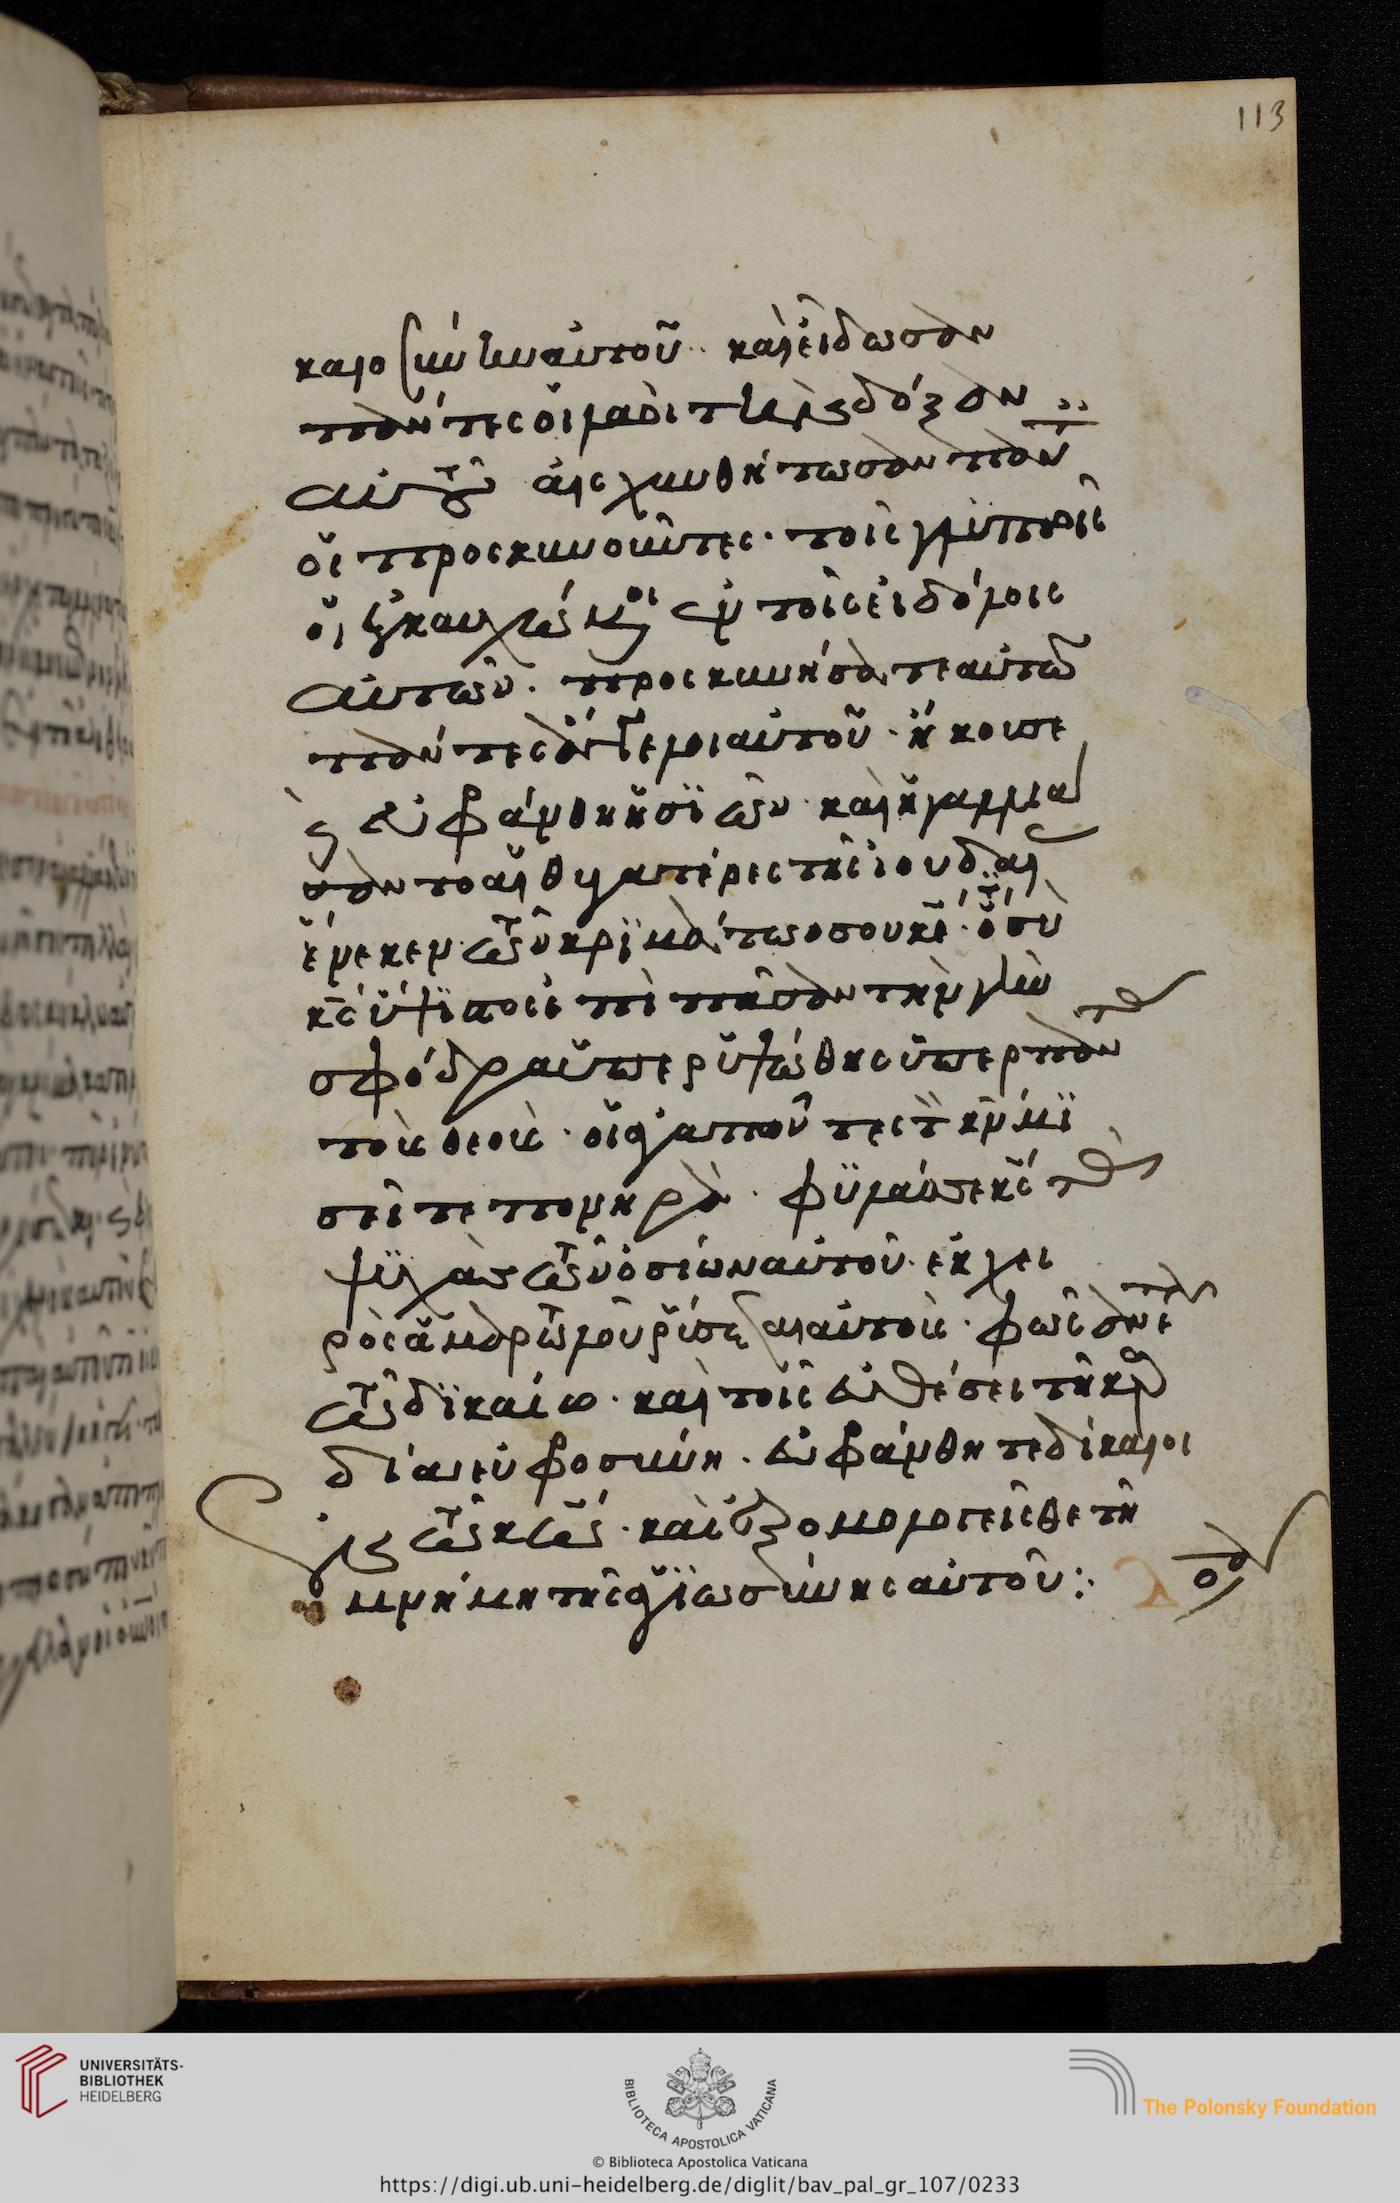 113
καιοσύνην αὐτοῦ· καὶ εἴδωσαν
πάντες οἱ λαοὶ τὴν δόξαν
αὐτοῦ αἰσχυνθήτωσαν πάντ
οἱ προσκυνοῦντες· τοῖς γλυπτοῖς
οἱ ἐγκαυχώμενοι ἐν τοῖς εἰδόλοις
αὐτῶν· προσκυνήσατε αὐτῶ
πάντες ἄγγελοι αὐτοῦ· ἤκουσε
καὶ εὐφράνθη ἡ σϊών· καὶ ἠγαλλιά
σαντο αἱ θυγατέρες τῆς ἰουδαί
ἕνεκεν τῶν κρϊμάτων σου κε· ὅτι σὺ
κς ὕψϊστος ἐπὶ πᾶσαν τὴν γῆν
σφόδρα ὑπερϋψώθης ὑπὲρ πάντας
τοὺς θεοὺς· οἱ ἀγαπῶντες τὸν κν μϊ
σεῖτε πονηρὰ· φϋλάσσει κς τὰς
ψϋχὰς τῶν ὁσίων αὐτοῦ· ἐκ χει
ρὸς ἁμαρτωλοῦ ῥύσεται αὐτοὺς· φῶς ἀνέτειλε
τῶ δϊκαίω· καὶ τοῖς εὐθέσι τῆ καρ
δία εὐφροσύνη· εὐφράνθητε δίκαιοι
ἐν τῶ κω· καὶ ἐξομολογεῖσθε τῆ
μνήμη τῆς ἁγϊωσύνης αὐτοῦ:·
UNIVERSITÄTS-
BIBLIOTHEK
HEIDELBERG
BIBLIOTECA APOSTOLICA VATICANA
The Polonsky Foundation
© Biblioteca Apostolica Vaticana
https://digi.ub.uni-heidelberg.de/diglit/bav_pal_gr_107/0233